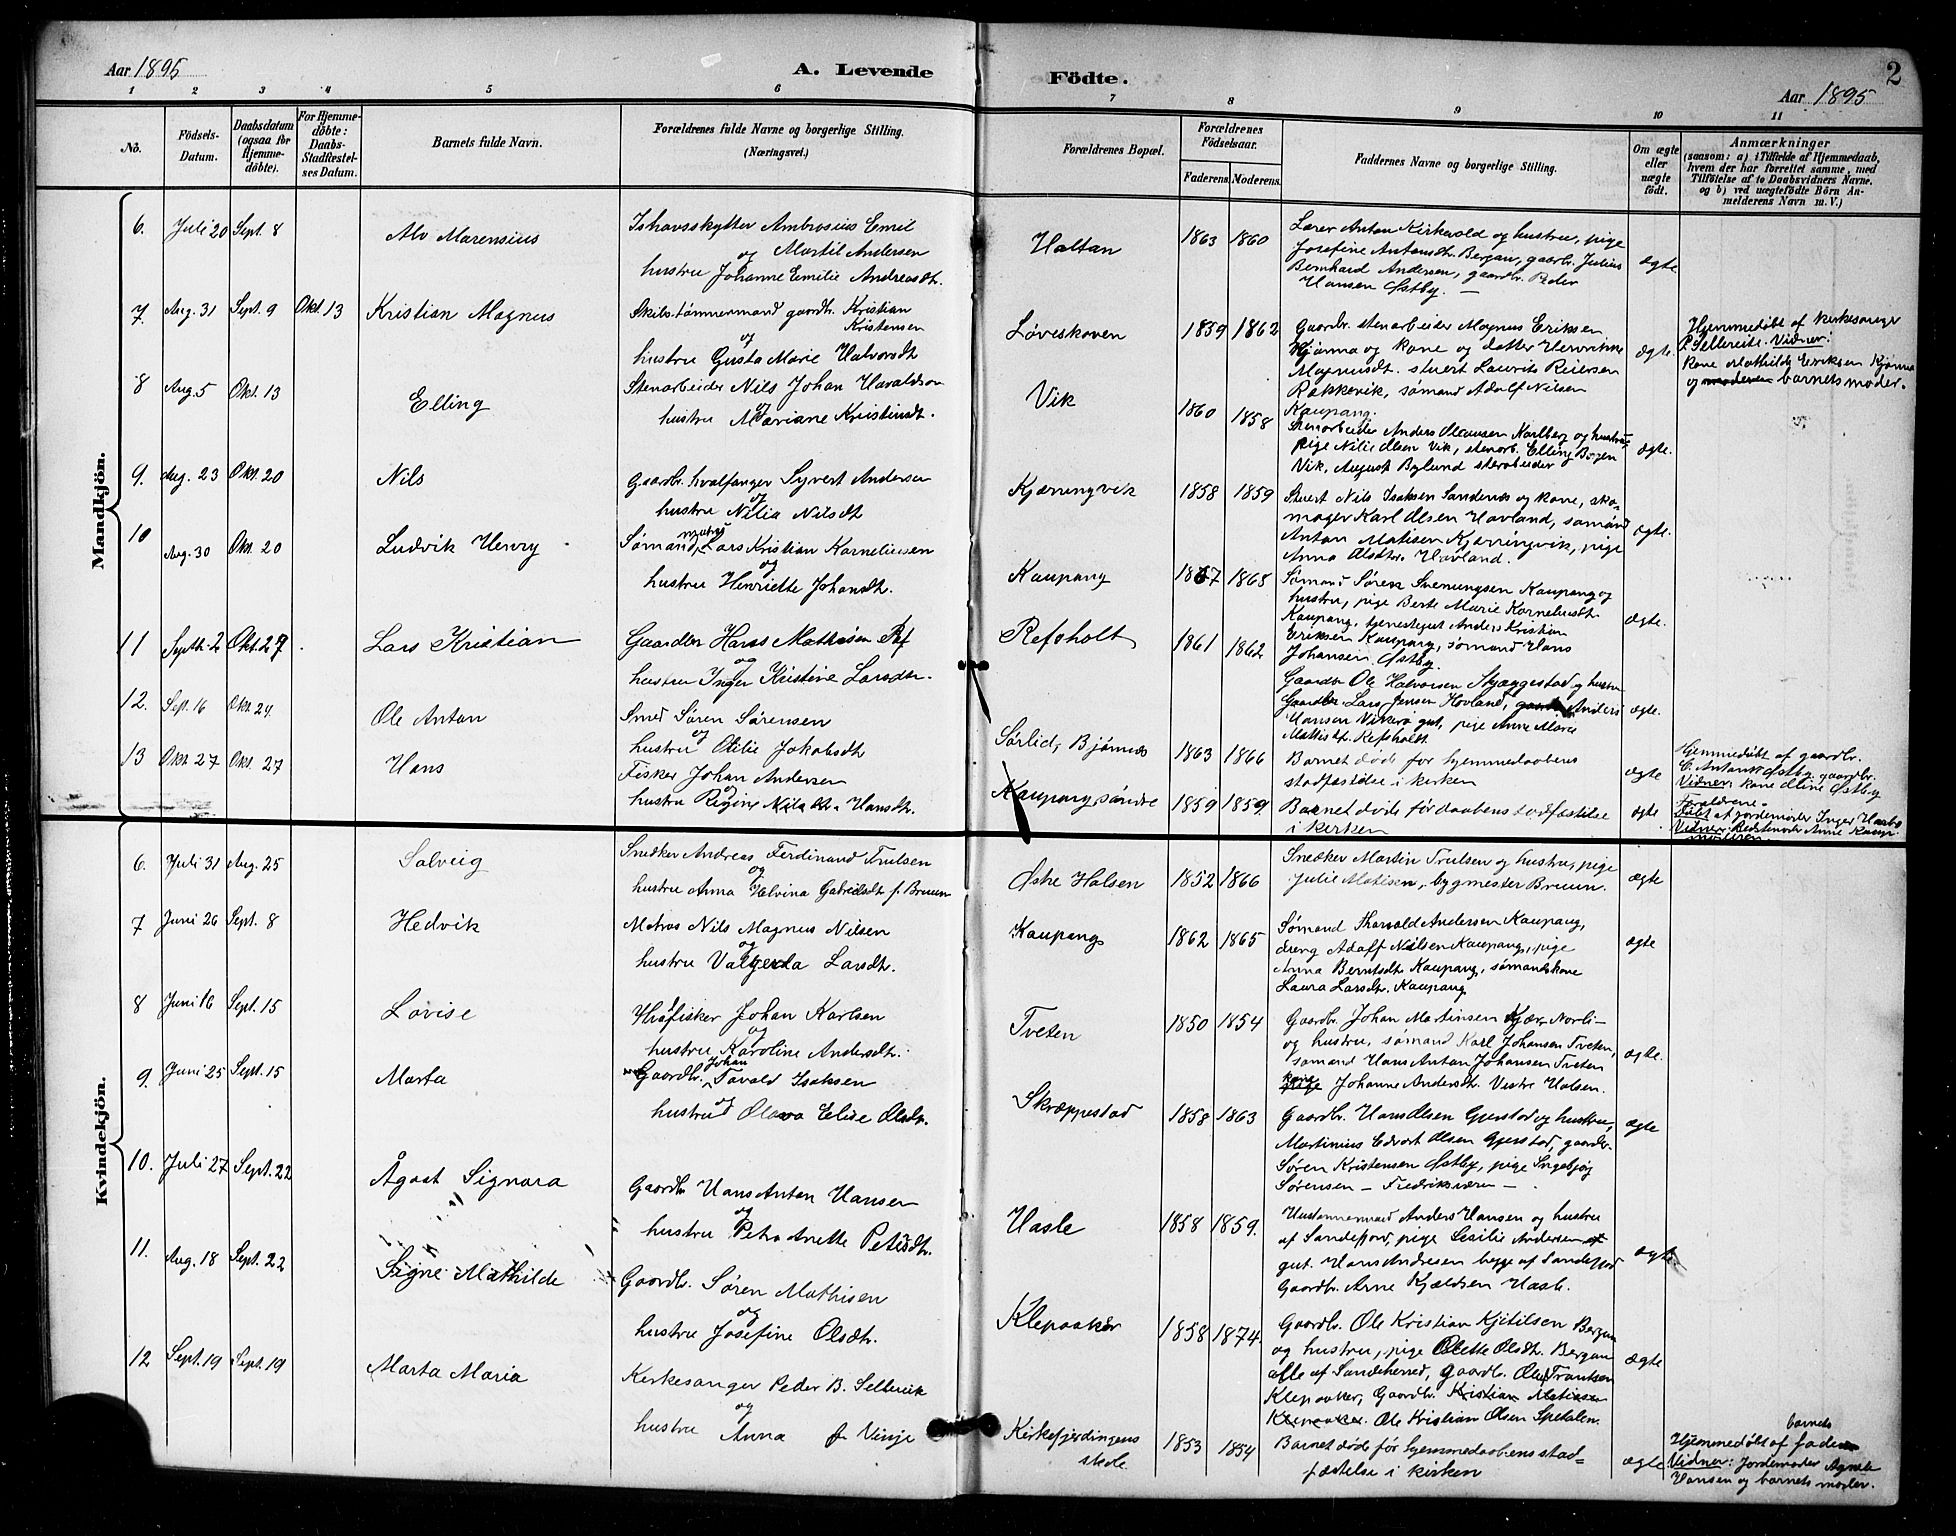 Aar 1895
A. Levende
Födte.
2
Aar 1895
1 2 3 4 5 6 7 8 9 10 11
No.
Födsels-
Datum.
Daabsdatum
(ogsaa for
Hjemme-
döbte).
For Hjemme-
döbte:
Daabs-
Stadfæstel-
ses Datum.
Barnets fulde Navn.
Forældrenes fulde Navne og borgerlige Stilling.
(Næringsvei.)
Forældrenes Bopæl.
Forældrenes
Födselsaar.
Faderens. Moderens.
Faddernes Navne og borgerlige Stilling.
Om ægte
eller
uægte
födt.
Anmærkninger
(saasom: a) i Tilfælde af Hjemmedaab,
hvem der har forrettet samme, med
Tilföielse af to Daabsvidners Navne,
og b) ved uægtefödte Börn An-
melderens Navn m. V.)
Mandkjön.
6. Juli 20 Sept. 8
Alv Marensius
Ishavsskytter Ambrosius Emil
og Martil Andersen
hustru Johanne Emilie Andreasdt.
Haltan
1863 1860
Lærer Anton Kirkevold og hustru, pige
Josefine Antonsdt. Bergan, gaardbr. Julius
Bernhard Andersen, gaardbr. Peder
Hansen Østby. –
ægte
7. Aug. 31 Sept. 9 Okt. 13
Kristian Magnus
Skibstømmermand gaardbr. Kristian
Kristensen
og
hustru Gusta Marie Halvorsdt
Løveskoven
1859 1862
Gaardbr. stenarbeider Magnus Eriksen
Kjønnø og kone og datter Henrikke
Magnusdt. stuert Laurits Reiersen
Rakkevik, sømand Adolf Nilsen
Kaupang.
ægte.
Hjemmedøbt af kirkesanger
P. Sellereite. Vidner:
kone Mathilde Eriksen Kjønnø
og moderen barnets moder.
8 Aug. 5 Okt. 13
Elling
Stenarbeider Nils Johan Havaldsen
og
hustru Mariane Kristinsdt.
Vik
1860 1858
Stenarbeider Anders Olausen Karlberg og hustru,
pige Nilie Olsen Vik, stenarb. Elling Bojen
Vik, August Bylund stenarbeider
ægte.
9. Aug. 23 Okt. 20
Nils
Gaardbr. hvalfanger Syvert Andersen
og
hustru Nilia Nilsdt
Kjærringvik
1858 1859
Stuert Nils Isaksen Sandenes og kone, sko-
mager Karl Olsen Havland, sømand
Anton Matisen Kjærringvik, pige
Anna Olsdtr. Havland.
ægte.
10 Aug. 30 Okt. 20
Ludvik Henry
Sømand, matros Lars Kristian Korneliusen
og
hustru Henriette Johansdt.
Kaupang
1867 1868
Sømand Søren Svenungsen Kaupang og
hustru, pige Berte Marie Korneliusdt.
Kaupang, tjenestegut Anders Kristian
Eriksen Kaupang, sømand Hans
Johansen Østby.
ægte.
11 Septb. 2 Okt. 27
Lars Kristian
Gaardbr Hans Mathisen Ref
og
hustru Inger Kristine Larsdtr.
Refsholt
1861 1862
Gaardbr Ole Halvorsen Skjæggestad og hustru
Gaardbr. Lars Jensen Hovland, Anders
Hansen Vikerø gut, pige Anne Marie
Mattisdt. Refsholt
ægte.
12. Sept. 16 Okt. 24.
Ole Anton
Smed Søren Sørensen
og
hustru Otilie Jakobsdt
Sørlid, Bjønnes
1863 1866
Barnet døde før hjemmedaabens
stadfæstelse i kirken
ægte
Hjemmedøbt af gaardbr.
C. Antonsen Østby, gaardbr.
Vidner: kone Oline Østby
Forældrene.
13 Okt. 27 Okt. 27
Hans
Fisker Johan Andersen
og
hustru Regine Hansdt.
Kaupang søndre
1859 1859.
Barnet døde før daabens stadfæstelse
i kirken
ægte
Døbt af jordemoder Inger Haabø
Vidner: Bedstemoder Anne Kaup.
Kvindekjön.
6. Juli 31 Aug. 25
Solveig
Snedker Andreas Ferdinand Trulsen
og
hustru Anna Helvina Gabrielsdt f. Bruun
Østre Halsen
1852 1866
Snekker Martin Trulsen og hustru, pige
Julie Matisen, bygmester Bruun.
ægte
7 Juni 26 Sept. 8
Hedvik
Matros Nils Magnus Nilsen
og
hustru Valgerda Larsdt.
Kaupang
1862 1865
Sømand Thorvald Andersen Kaupang,
dreng Adolf Nilsen Kaupang, pige
Anna Berntsdt. Kaupang, sømandskone
Laura Larsdt. Kaupang
ægte
8 Juni 16 Sept. 15
Lovise
Håfisker Johan Karlsen
og
hustru Karoline Andersdt.
Tveten
1850 1854
Gaardbr. Johan Martinsen Kjær Norli –
og hustru, sømand Karl Johansen Tveten,
sømand Hans Anton Johansen Tveten
kone pige Johanne Andersdt. Vestre Halsen.
ægte.
9. Juni 25 Sept. 15
Marta
Gaardbr. Johan Tovald Isaksen
og
hustru Olava Elise Olsdt.
Skræppestad
1858 1863
Gaardbr. Hans Olsen Gjerstad og hustru,
Martinius Edvart Olsen Gjerstad, gaardbr.
Søren Kristensen Østby, pige Ingebjørg
Sørensen – Fredriksværn – .
ægte
10. Juli 27 Sept. 22
Ågaat Signora
Gaardbr Hans Anton Hansen
og
hustru Petra Anette Petersdt.
Hasle
1858 1859.
Hustømmermand Anders Hansen og hustru
af Sandefjord, pige Lesilie Andersen
gut. Hans Andresen begge af Sandefjord
Gaardbr. Arne Kjældsen Hasle.
ægte.
11. Aug. 18 Sept. 22
Signe Mathilde
Gaardbr. Søren Mathisen
og
hustru Josefine Olsdtr.
Klepaaker
1858 1874.
Gaardbr. Ole Kristian Kjetilsen Bergan
og hustru, pige Olette Olsdt. Bergan
alle af Sandeherred, Gaardbr. Ole Frantsen
Klepaaker, Gaardbr. Kristian Matisen
Klepaaker. Ole Kristian Olsen Spetalen.
ægte
12 Sept. 19 Sept. 19
Marta Maria
Kirkesanger Peder B. Sellereite
og
hustru Anna f. Vinje
Kirkefjerdingens
skole.
1853 1854
Barnet døde før hjemmedaabens stad-
fæstelse i kirken
ægte
barnets
Hjemmedøbt af fader
Vidner: Jordemoder Agnete
Hansen og barnets moder.